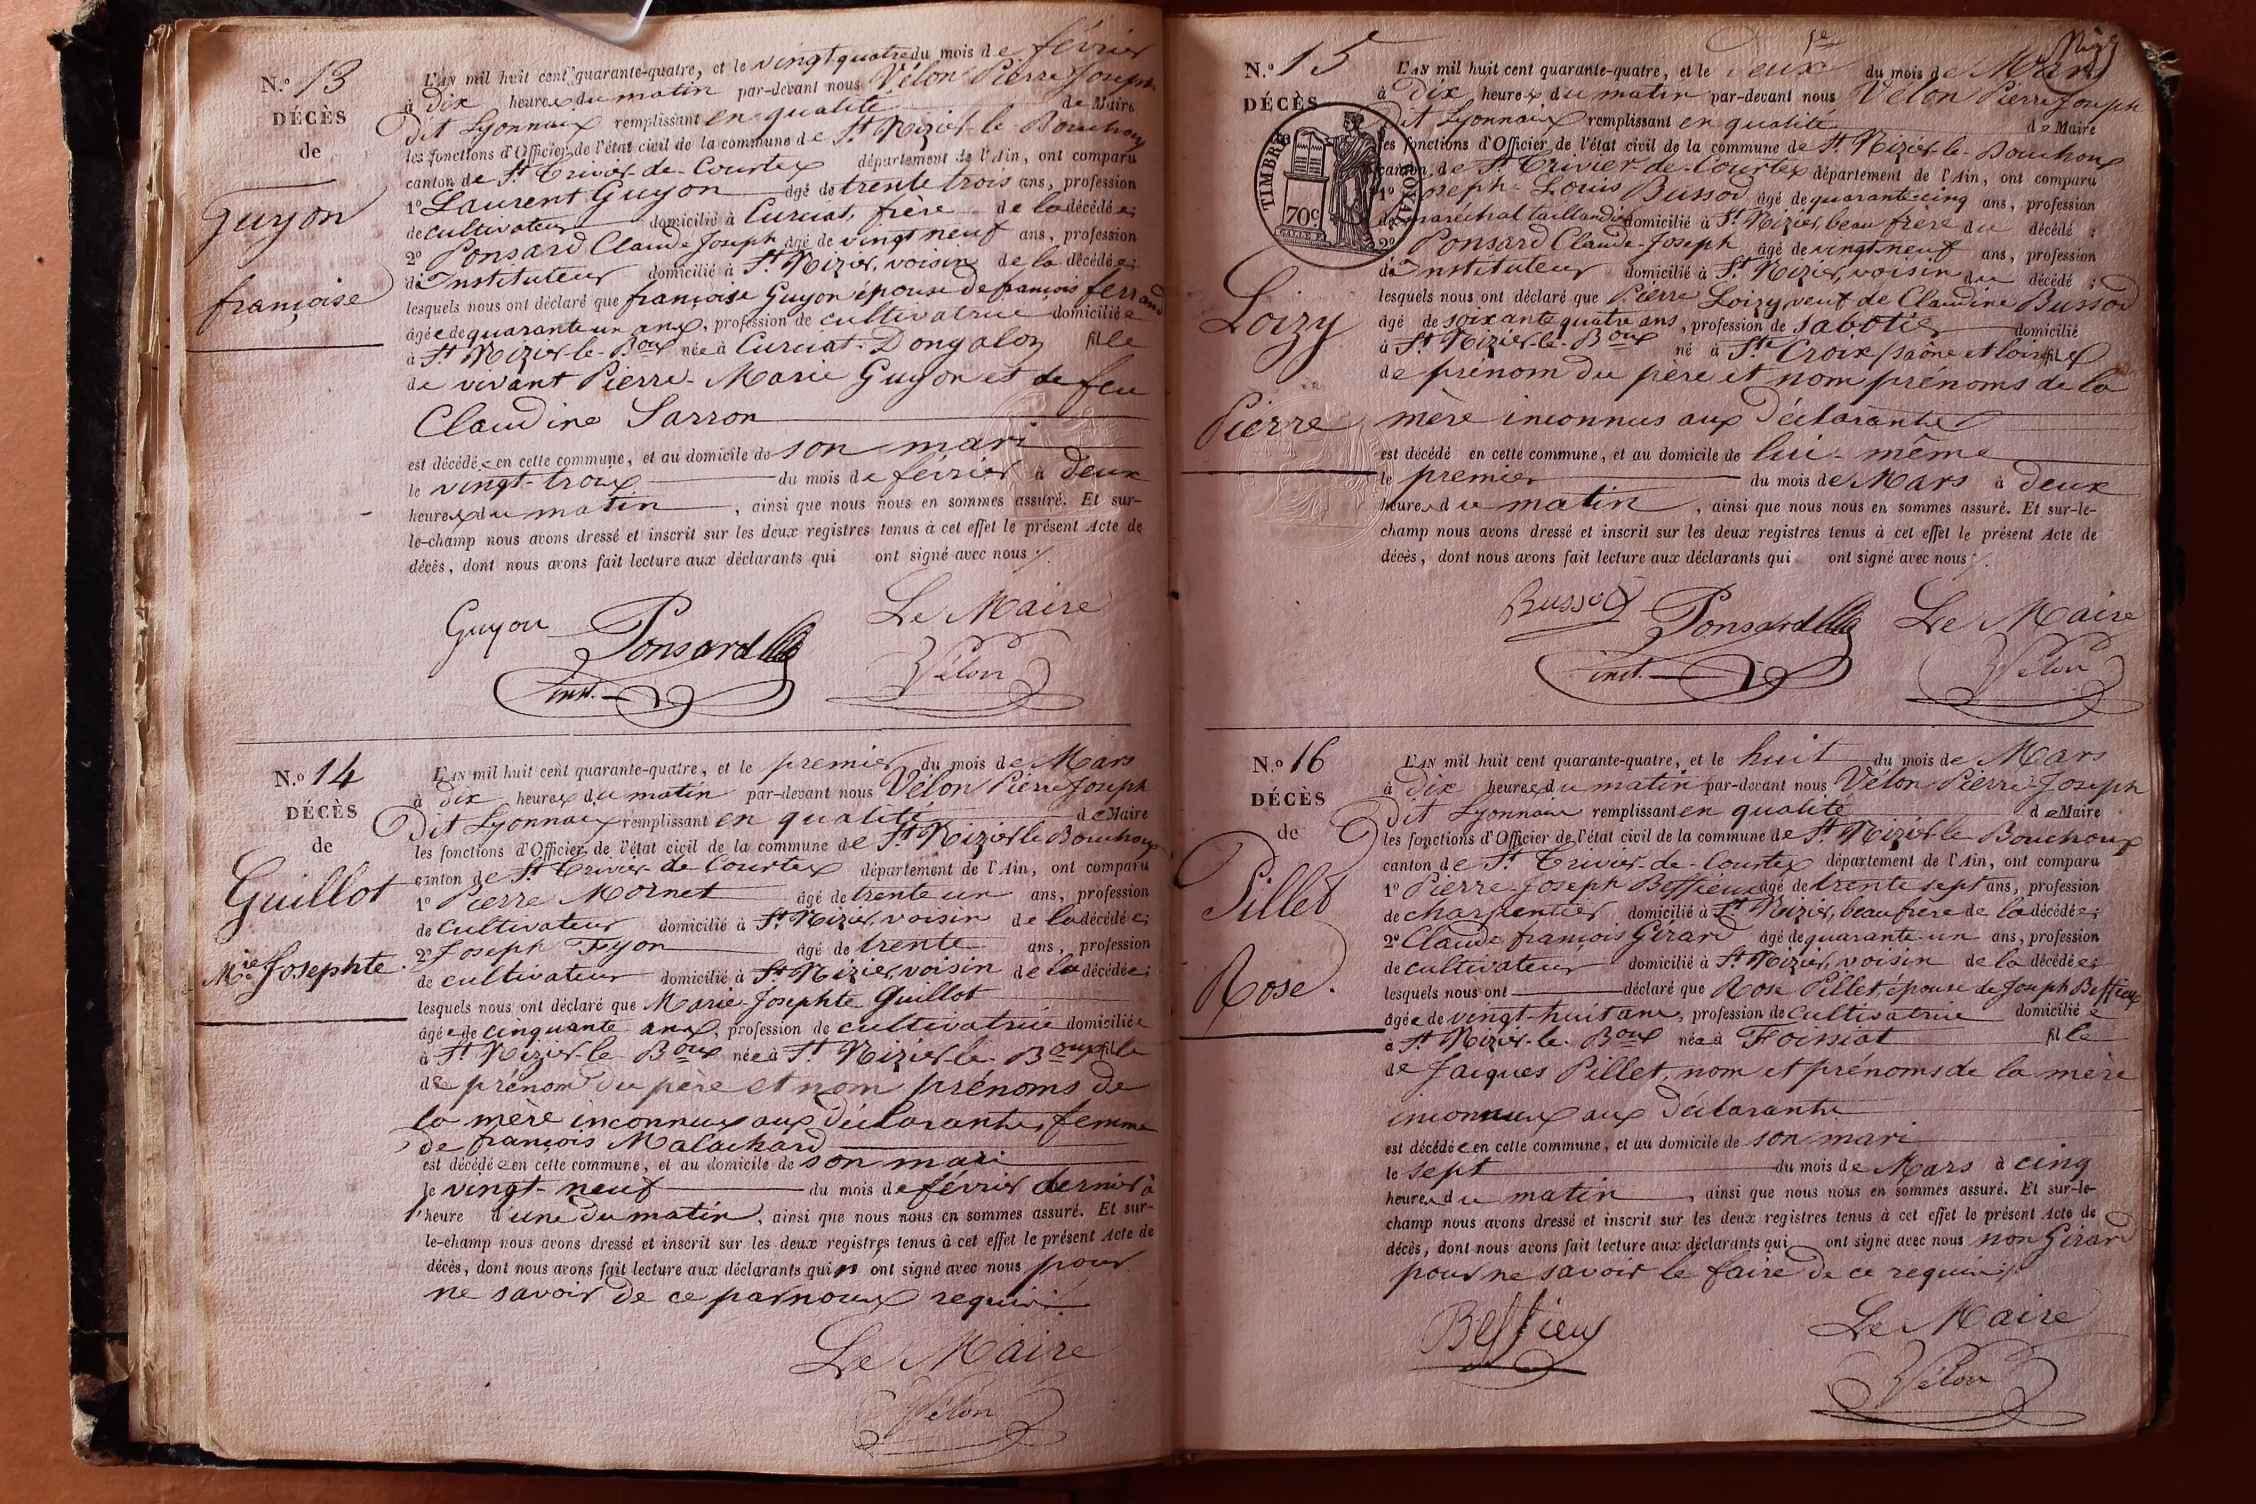 N.o 13
DÉCÈS
de
Guyon
françoise
L'AN mil huit cent quarante-quatre, et le vingt quatre du mois de février
à dix heures du matin par-devant nous Vélon Pierre Joseph
dit Lyonnais remplissant en qualité de Maire
les fonctions d'Officier de l'état civil de la commune de St Nizier-le-Bouchoux
canton de St Trivier-de-Courtes département de l'Ain, ont comparu
1o Laurent Guyon âgé de trente trois ans, profession
de cultivateur domicilié à Curciat, frère de la décédée;
2o Ponsard Claude Joseph âgé de vingt neuf ans, profession
de Instituteur domicilié à St Nizier, voisin de la décédée;
lesquels nous ont déclaré que françoise Guyon épouse de françois ferrand
âgée de quarante un ans, profession de cultivatrice domiciliée
à St Nizier-le-Boux née à Curciat-Dongalon fille
de vivant Pierre-Marie Guyon et de feu
Claudine Sarron
est décédée en cette commune, et au domicile de son mari
le vingt-trois du mois de février à deux
heures du matin, ainsi que nous nous en sommes assuré. Et sur-
le-champ nous avons dressé et inscrit sur les deux registres tenus à cet effet le présent Acte de
décès, dont nous avons fait lecture aux déclarants qui ont signé avec nous
Guyon Ponsard Le Maire
inst. Vélon
N.o 14
DÉCÈS
de
Guillot
Mie Josephte.
L'AN mil huit cent quarante-quatre, et le premier du mois de Mars
à dix heures du matin par-devant nous Vélon Pierre Joseph
dit Lyonnais remplissant en qualité de Maire
les fonctions d'Officier de l'état civil de la commune de St Nizier le Bouchoux
canton de St Trivier-de-Courtes département de l'Ain, ont comparu
1o Pierre Mornet âgé de trente un ans, profession
de cultivateur domicilié à St Nizier, voisin de la décédée;
2o Joseph Fyon âgé de trente ans, profession
de cultivateur domicilié à St Nizier, voisin de la décédée;
lesquels nous ont déclaré que Marie-Josephte Guillot
âgée de cinquante ans, profession de cultivatrice domiciliée
à St Nizier-le-Boux née à St Nizier-le-Boux fille
de prénom du père et nom prénoms de
la mère inconnus aux déclarants, femme
de françois Malachard
est décédée en cette commune, et au domicile de son mari
le vingt-neuf du mois de février dernier à
heure d'une du matin, ainsi que nous nous en sommes assuré. Et sur-
le-champ nous avons dressé et inscrit sur les deux registres tenus à cet effet le présent Acte de
décès, dont nous avons fait lecture aux déclarants qui n'ont signé avec nous pour
ne savoir de ce par nous requis
Le Maire
Vélon
N.o 15
DÉCÈS
TIMBRE ROYAL
70c
Loizy
Pierre
L'AN mil huit cent quarante-quatre, et le deux du mois de Mars
à dix heures du matin par-devant nous Vélon Pierre Joseph
dit Lyonnais remplissant en qualité de Maire
les fonctions d'Officier de l'état civil de la commune de St Nizier-le-Bouchoux
canton de St Trivier-de-Courtes département de l'Ain, ont comparu
1o Joseph-Louis Bussod âgé de quarante cinq ans, profession
de maréchal taillandier domicilié à St Nizier, beau frère du décédé;
2o Ponsard Claude-Joseph âgé de vingt neuf ans, profession
de Instituteur domicilié à St Nizier, voisin du décédé;
lesquels nous ont déclaré que Pierre Loizy veuf de Claudine Bussod
âgé de soixante quatre ans, profession de sabotier domicilié
à St Nizier-le-Boux né à Ste Croix (saône et loire) fils
de prénom du père et nom prénoms de la
mère inconnus aux déclarants
est décédé en cette commune, et au domicile de lui-même
le premier du mois de Mars à deux
heures du matin, ainsi que nous nous en sommes assuré. Et sur-le-
champ nous avons dressé et inscrit sur les deux registres tenus à cet effet le présent Acte de
décès, dont nous avons fait lecture aux déclarants qui ont signé avec nous
Bussod Ponsard Le Maire
inst. Vélon
N.o 16
DÉCÈS
de
Pillet
Rose.
L'AN mil huit cent quarante-quatre, et le huit du mois de Mars
à dix heures du matin par-devant nous Vélon Pierre-Joseph
dit Lyonnais remplissant en qualité de Maire
les fonctions d'Officier de l'état civil de la commune de St Nizier-le Bouchoux
canton de St Trivier-de-Courtes département de l'Ain, ont comparu
1o Pierre-Joseph Beffieux âgé de trente sept ans, profession
de charpentier domicilié à St Nizier, beau frère de la décédée;
2o Claude françois Girard âgé de quarante-un ans, profession
de cultivateur domicilié à St Nizier, voisin de la décédée;
lesquels nous ont déclaré que Rose Pillet, épouse de Joseph Beffieux
âgée de vingt-huit ans, profession de cultivatrice domiciliée
à St Nizier-le-Boux née à Foissiat fille
de Jacques Pillet, nom et prénoms de la mère
inconnus aux déclarants
est décédée en cette commune, et au domicile de son mari
le sept du mois de Mars à cinq
heures du matin, ainsi que nous nous en sommes assuré. Et sur-le-
champ nous avons dressé et inscrit sur les deux registres tenus à cet effet le présent Acte de
décès, dont nous avons fait lecture aux déclarants qui ont signé avec nous non Girard
pour ne savoir le faire de ce requis
Beffieux Le Maire
Vélon